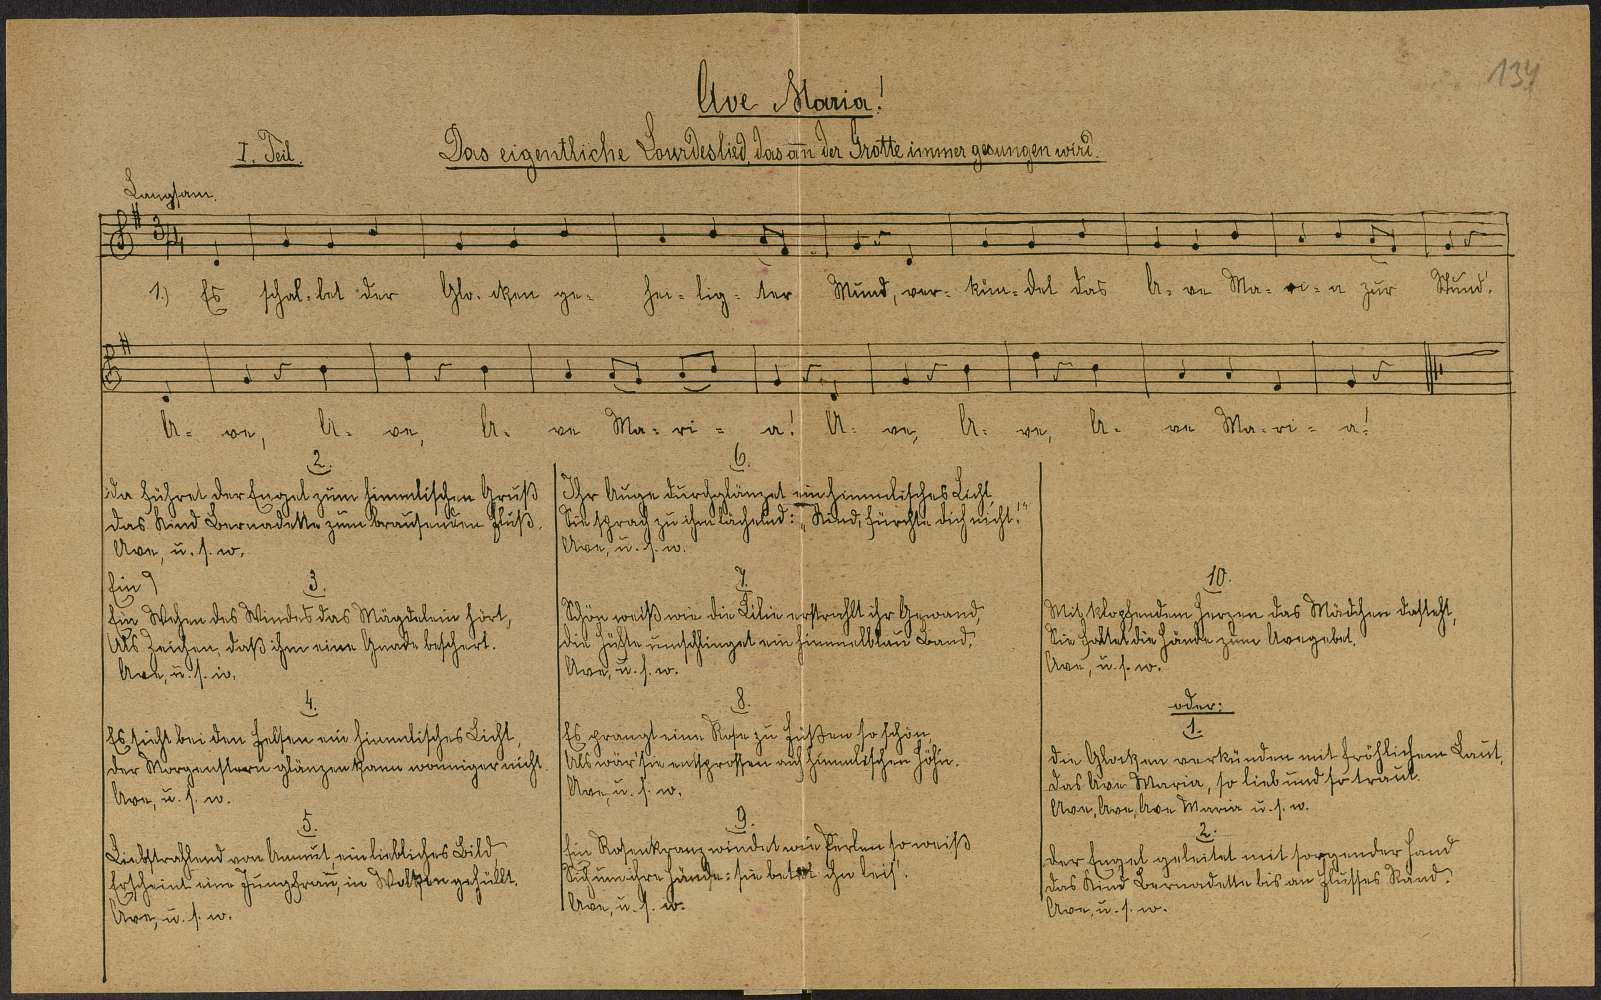 134
Ave Maria!
I. Teil. Das eigentliche Lourdeslied, das an der Grotte immer gesungen wird.
Langsam.
3/4
1.) Es schal-let der Glo-cken ge- hei-lig-ter Mund, ver-kün-det das A-ve Ma-ri-a zur Stund'.
A-ve, A-ve, A-ve Ma-ri-a! A-ve, A-ve, A-ve Ma-ri-a!
2.
da führet der Engel zum himmlischen Gruß
Das Kind Bernadette zum brausenden Fluß.
Ave, u. s. w.
Ein
3.
Ein Wehen des Windes das Mägdelein hört,
Als Zeichen, daß ihm eine Gnade beschert.
Ave, u. s. w.
4.
Es sieht bei den Felsen ein himmlisches Licht,
der Morgenstern glänzen kann wonniger nicht.
Ave, u. s. w.
5.
Liebstrahlend von Anmut, ein liebliches Bild,
Erscheint eine Jungfrau, in Wolken gehüllt.
Ave, u. s. w.
6.
Ihr Auge durchglänzet ein himmlisches Licht,
Sie sprach zu ihm lächelnd: „Kind, fürchte dich nicht!"
Ave, u. s. w.
7.
Schön weiß wie die Lilie erstrahlt ihr Gewand,
die Hüfte umschlinget ein himmelblau Band.
Ave, u. s. w.
8.
Es prangt eine Rose zu Füßen so schön,
Als wär' sie entsprossen auf himmlischen Höh'n.
Ave, u. s. w.
9.
Ein Rosenkranz windet wie Perlen so weiß
Sich um ihre Hände: sie betet ihn leis'!
Ave, u. s. w.
10.
Mit klopfendem Herzen das Mädchen dasteht,
Sie faltet die Hände zum Avegebet.
Ave, u. s. w.
oder:
1.
die Glocken verkünden mit fröhlichem Laut,
Das Ave Maria, so lieb und so traut.
Ave, Ave, Ave Maria u. s. w.
2.
der Engel geleitet mit sorgender Hand
das Kind Bernadette bis an Flusses Rand.
Ave, u. s. w.